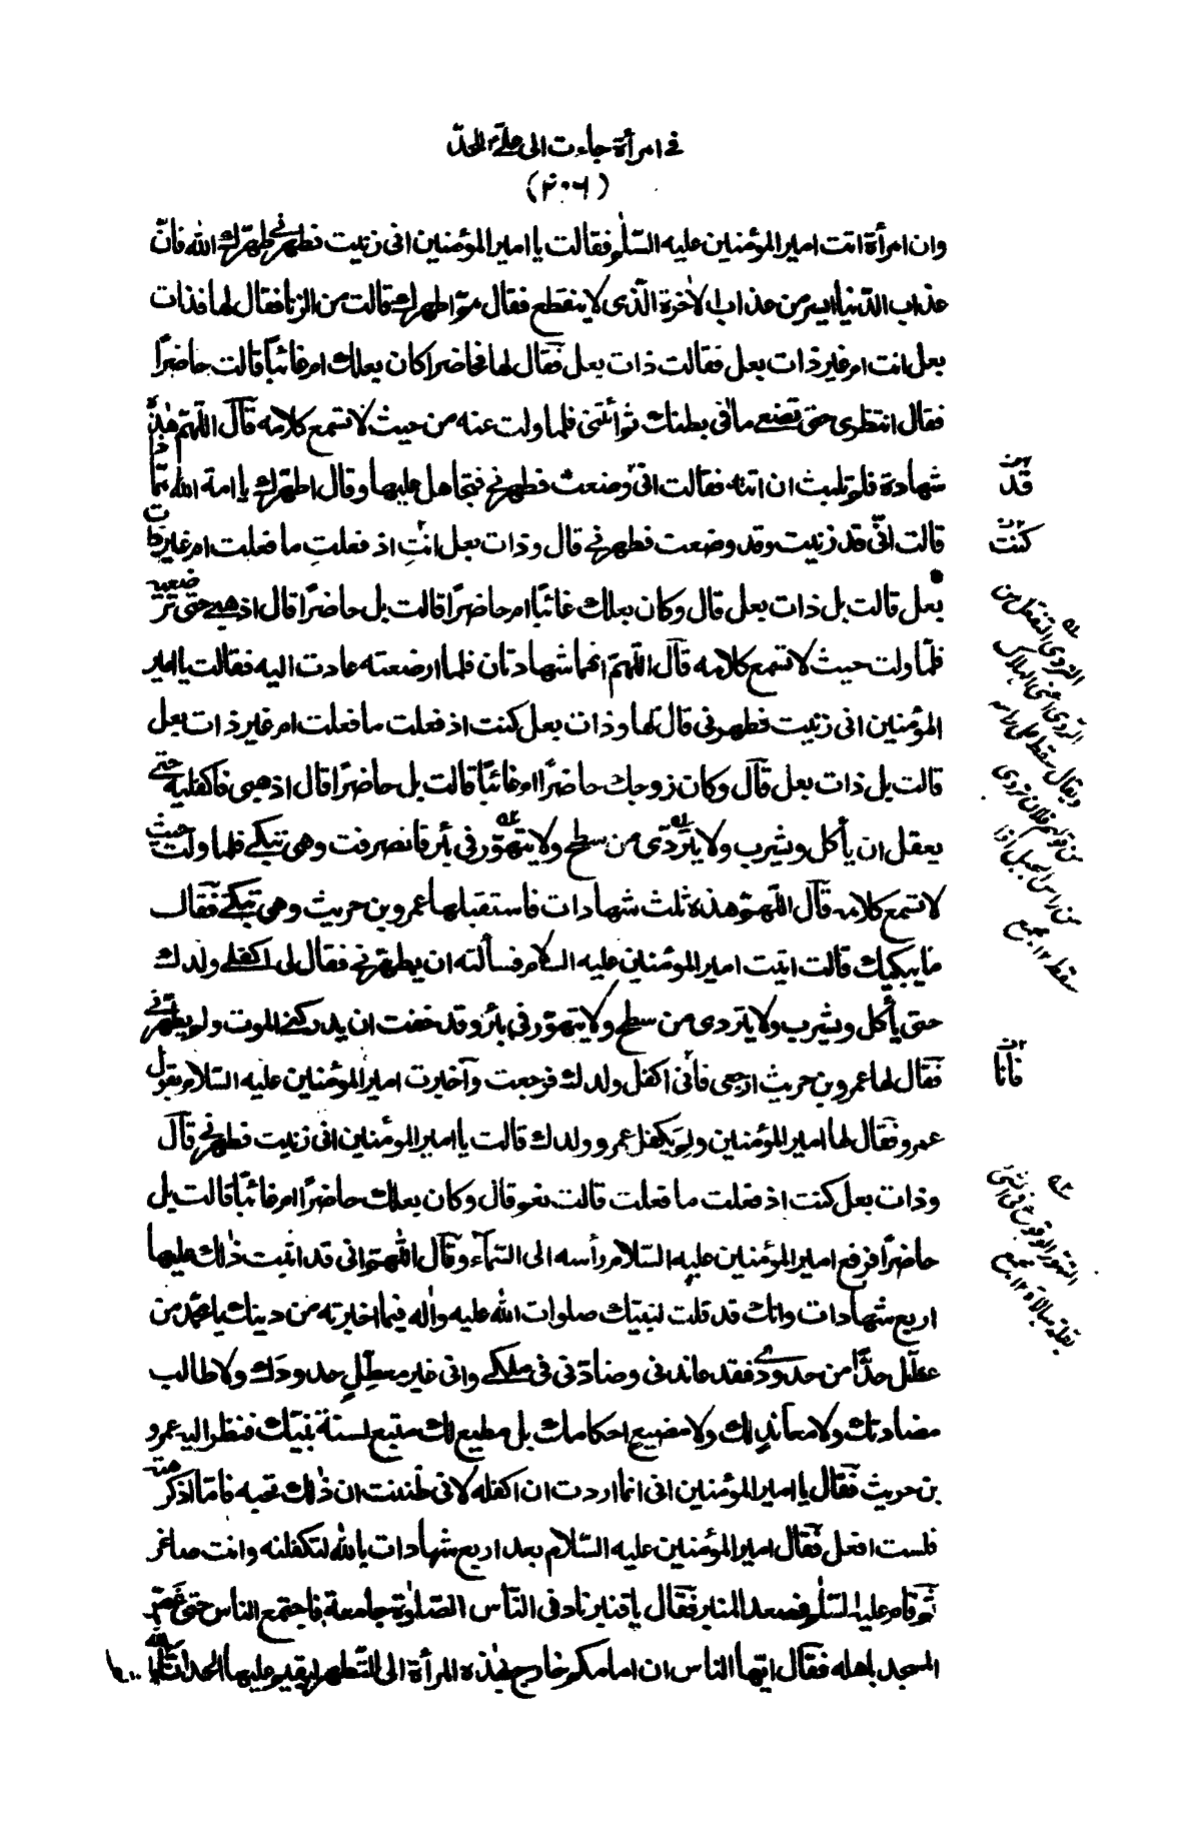 في امرأة جاءت الى علي للحدّ
(٢٠٦)
وان امرأة اتت اميرالمؤمنين عليه السّلم فقالت يا اميرالمؤمنين انى زنيت فطهرني طهّرك الله فانّ
عذاب الدّنيا ايسر من عذاب الاخرة الّذى لا ينقطع فقال ممّ اطهرك قالت من الزنا فقال لها فذات
بعل انت ام غير ذات بعل فقالت ذات بعل فقال لها فحاضرا كان بعلك ام غائباً قالت حاضراً
فقال انتظرى حتى تضعى ما فى بطنك ثم ائتنى فلما ولت عنه من حيث لا تسمع كلامه قال اللّهمّ هذه
شهادة فلم تلبث ان اتته فقالت انى وضعت فطهرني فتجاهل عليها وقال اطهرك يا امة الله ممّا ذا
قالت انّى قد زنيت وقد وضعت فطهرني قال وذات بعل انتِ اذ فعلتِ ما فعلت ام غير ذات
بعل قالت بل ذات بعل قال وكان بعلك غائباً ام حاضراً قالت بل حاضراً قال اذهبي حتى ترضعيه
فلمّا ولت حيث لا تسمع كلامه قال اللّهمّ انهما شهادتان فلما ارضعته عادت اليه فقالت يا امير
المؤمنين انى زنيت فطهرنى قال لها وذات بعل كنت اذ فعلت ما فعلت ام غير ذات بعل
قالت بل ذات بعل قال وكان زوجك حاضراً ام غائباً قالت بل حاضراً قال اذهبى فاكفليه حتى
يعقل ان يأكل ويشرب ولا يتردّى من سطح ولا يتهوّر فى بئر فانصرفت وهى تبكي فلما ولت حيث
لا تسمع كلامه قال اللّهمّ هذه ثلث شهادات فاستقبلها عمرو بن حريث وهى تبكي فقال
ما يبكيك قالت اتيت اميرالمؤمنين عليه السلام فسألته ان يطهرني فقال لى اكفلي ولدك
حتى يأكل ويشرب ولا يتردى من سطح ولا يتهوّر فى بئر وقد خفت ان يدركني الموت ولم يطهرني
فقال لها عمرو بن حريث ارجعى فانى اكفل ولدك فرجعت وآخبرت اميرالمؤمنين عليه السّلام بقول
عمرو فقال لها اميرالمؤمنين ولِمَ يكفل عمرو ولدك قالت يا اميرالمؤمنين انى زنيت فطهرني قال
وذات بعل كنت اذ فعلت ما فعلت قالت نعم قال وكان بعلك حاضراً ام غائباً قالت بل
حاضراً فرفع اميرالمؤمنين عليه السّلام رأسه الى السّمآء وقال اللّهمّ انى قد اثبت ذلك عليها
اربع شهادات وانك قد قلت لنبيّك صلوات الله عليه واله فيما اخبرته من دينك يا محمّد من
عطّل حدًّا من حدودي فقد عاندنى وضادّنى فى ملكي وانى غير معطّلٍ حدودك ولا طالب
مضادتك ولا معاندٍ لك ولا مضيعٍ احكامك بل مطيع لك متبع لسنة نبيّك فنظر اليه عمرو
بن حريث فقال يا اميرالمؤمنين انى انما اردت ان اكفله لانى ظننت ان ذلك تحبه فامّا اذ كرهته
فلست افعل فقال اميرالمؤمنين عليه السّلام بعد اربع شهادات بالله لتكفلنه وانت صاغر
ثم قام عليه السّلم فصعد المنبر فقال يا قنبر ناد فى النّاس الصّلوٰة جامعة فاجتمع الناس حتى غصّ
المسجد باهله فقال ايّها الناس ان امامكم خارج بهذه المرأة الى الظّهر ليقيم عليها الحد ان شاء الله
قد
كنت
التردى
الهلاك
ويقال سقط
من رأس الجبل اذا
سقط ١٢ مجمع
فانا
التهور الوقوع فى الشئ
بقلة مبالاة ١٢ مجمع